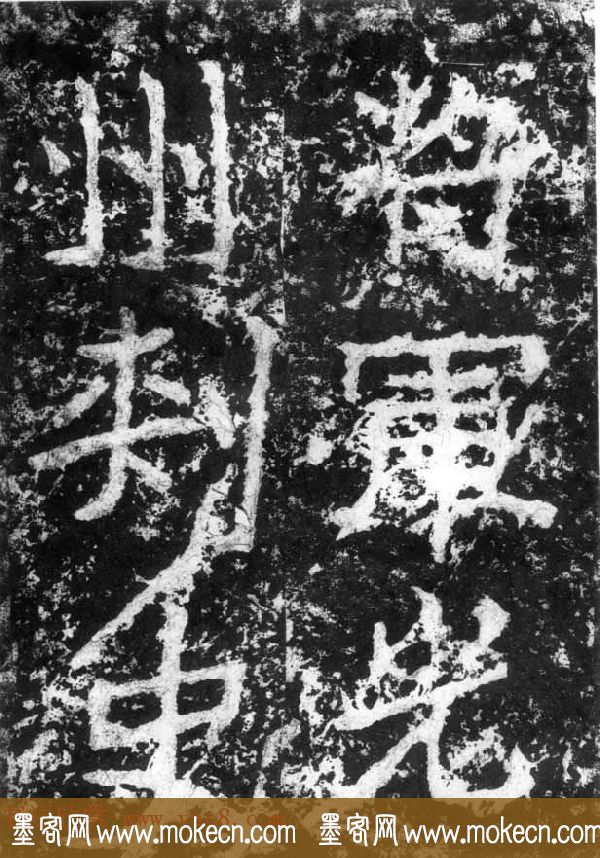 將軍光
州刺史
墨客网 www.mokecn.com 墨客网 www.mokecn.com